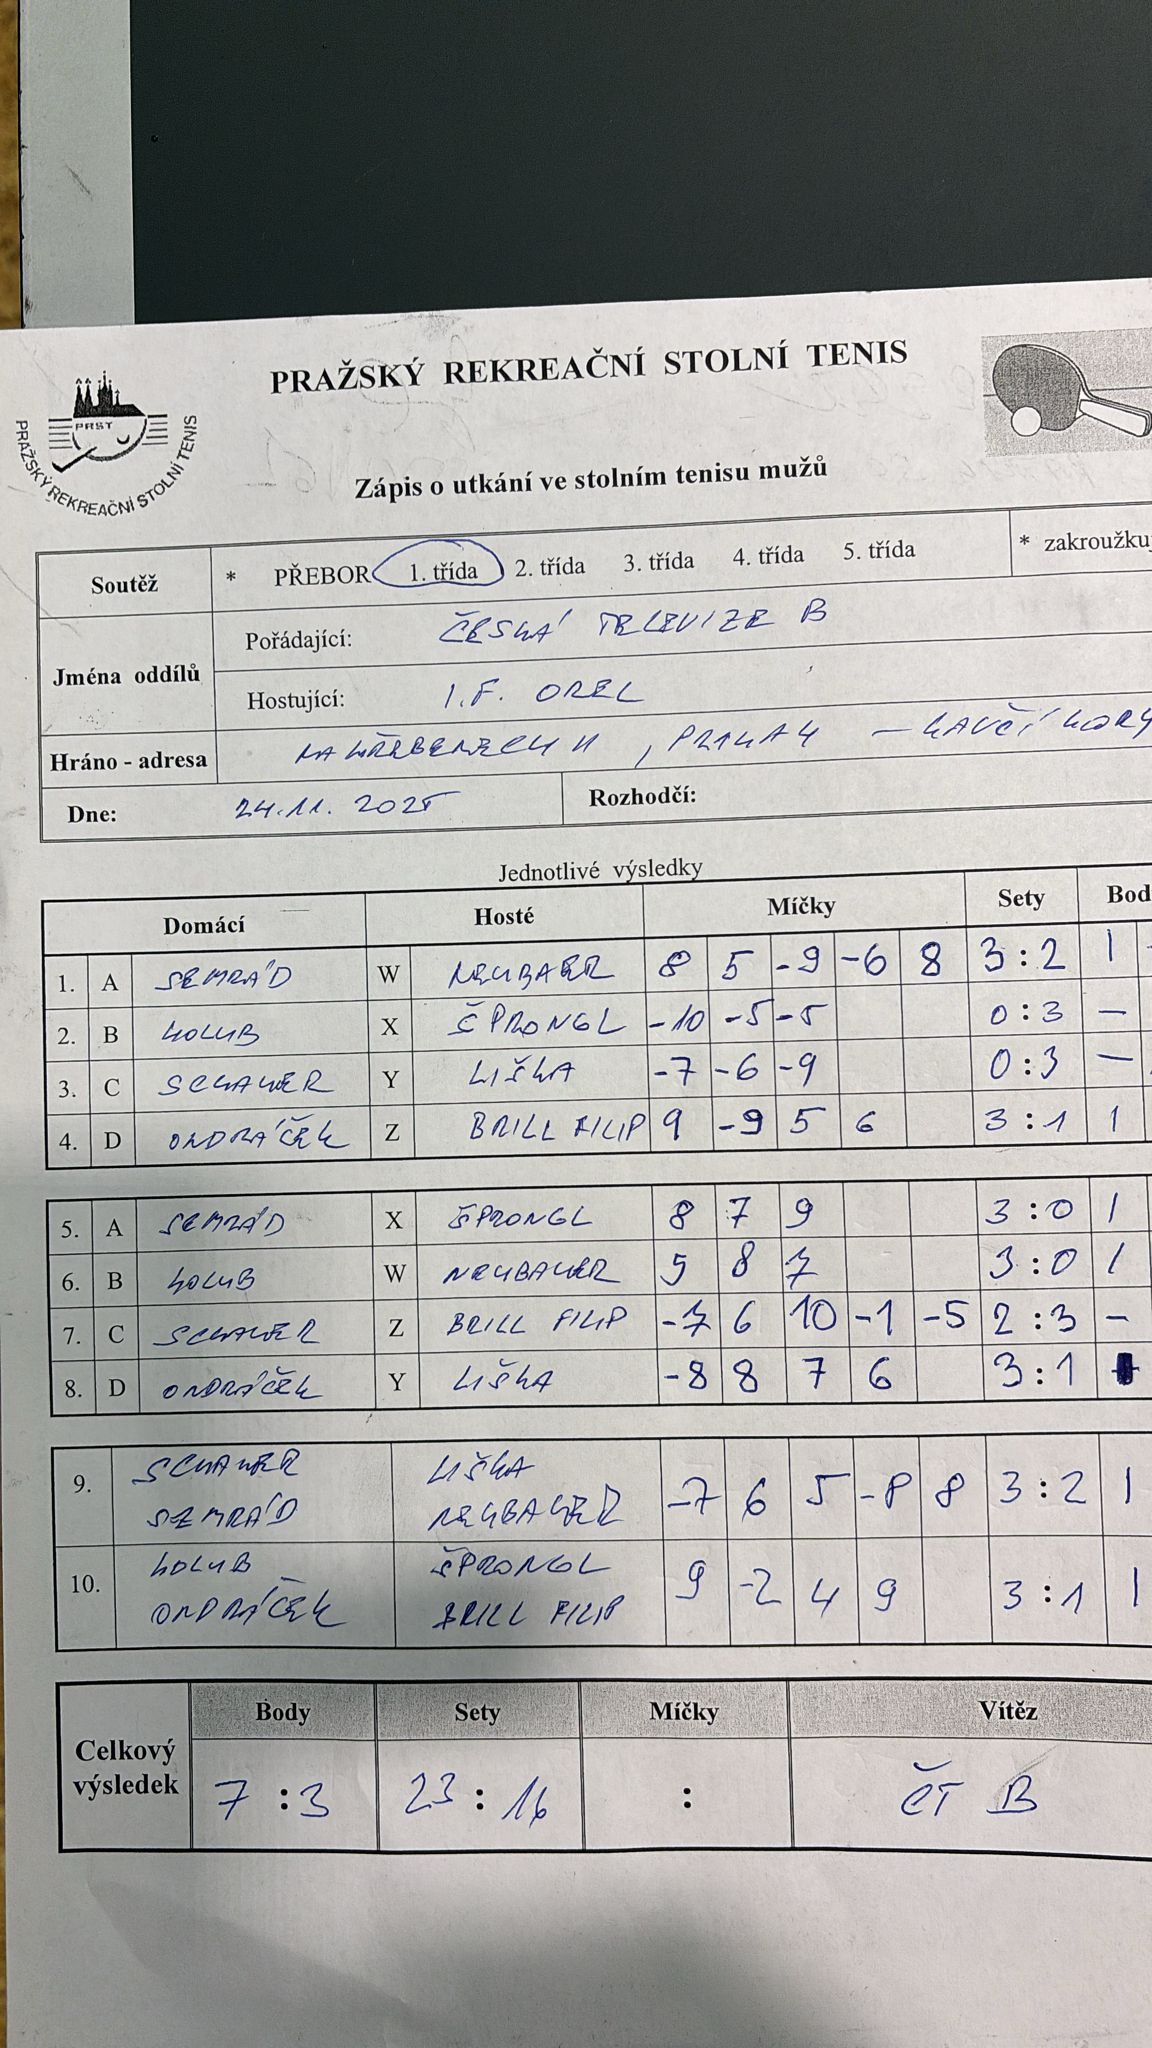 PRAŽSKÝ REKREAČNÍ STOLNÍ TENIS
PRST
PRAŽSKÝ REKREAČNÍ STOLNÍ TENIS
Zápis o utkání ve stolním tenisu mužů
Soutěž * PŘEBOR 1. třída 2. třída 3. třída 4. třída 5. třída * zakroužkuj
Jména oddílů
Pořádající: ČESKÁ TELEVIZE B
Hostující: I.F. OREL
Hráno - adresa NA HŘEBENECH II, PRAHA 4 – KAVČÍ HORY
Dne: 24.11. 2025 Rozhodčí:
Jednotlivé výsledky
Domácí Hosté Míčky Sety Bod
1. A SEMRÁD W NEUBAUER 8 5 -9 -6 8 3:2 1
2. B HOLUB X ŠPRONGL -10 -5 -5 0:3 –
3. C SCHAUER Y LIŠKA -7 -6 -9 0:3 –
4. D ONDRÁČEK Z BRILL FILIP 9 -9 5 6 3:1 1
5. A SEMRÁD X ŠPRONGL 8 7 9 3:0 1
6. B HOLUB W NEUBAUER 5 8 7 3:0 1
7. C SCHAUER Z BRILL FILIP -7 6 10 -1 -5 2:3 –
8. D ONDRÁČEK Y LIŠKA -8 8 7 6 3:1
9. SCHAUER LIŠKA -7 6 5 -8 8 3:2 1
SEMRÁD NEUBAUER
10. HOLUB ŠPRONGL 9 -2 4 9 3:1 1
ONDRÁČEK BRILL FILIP
Celkový výsledek
Body Sety Míčky Vítěz
7:3 23:16 : ČT B